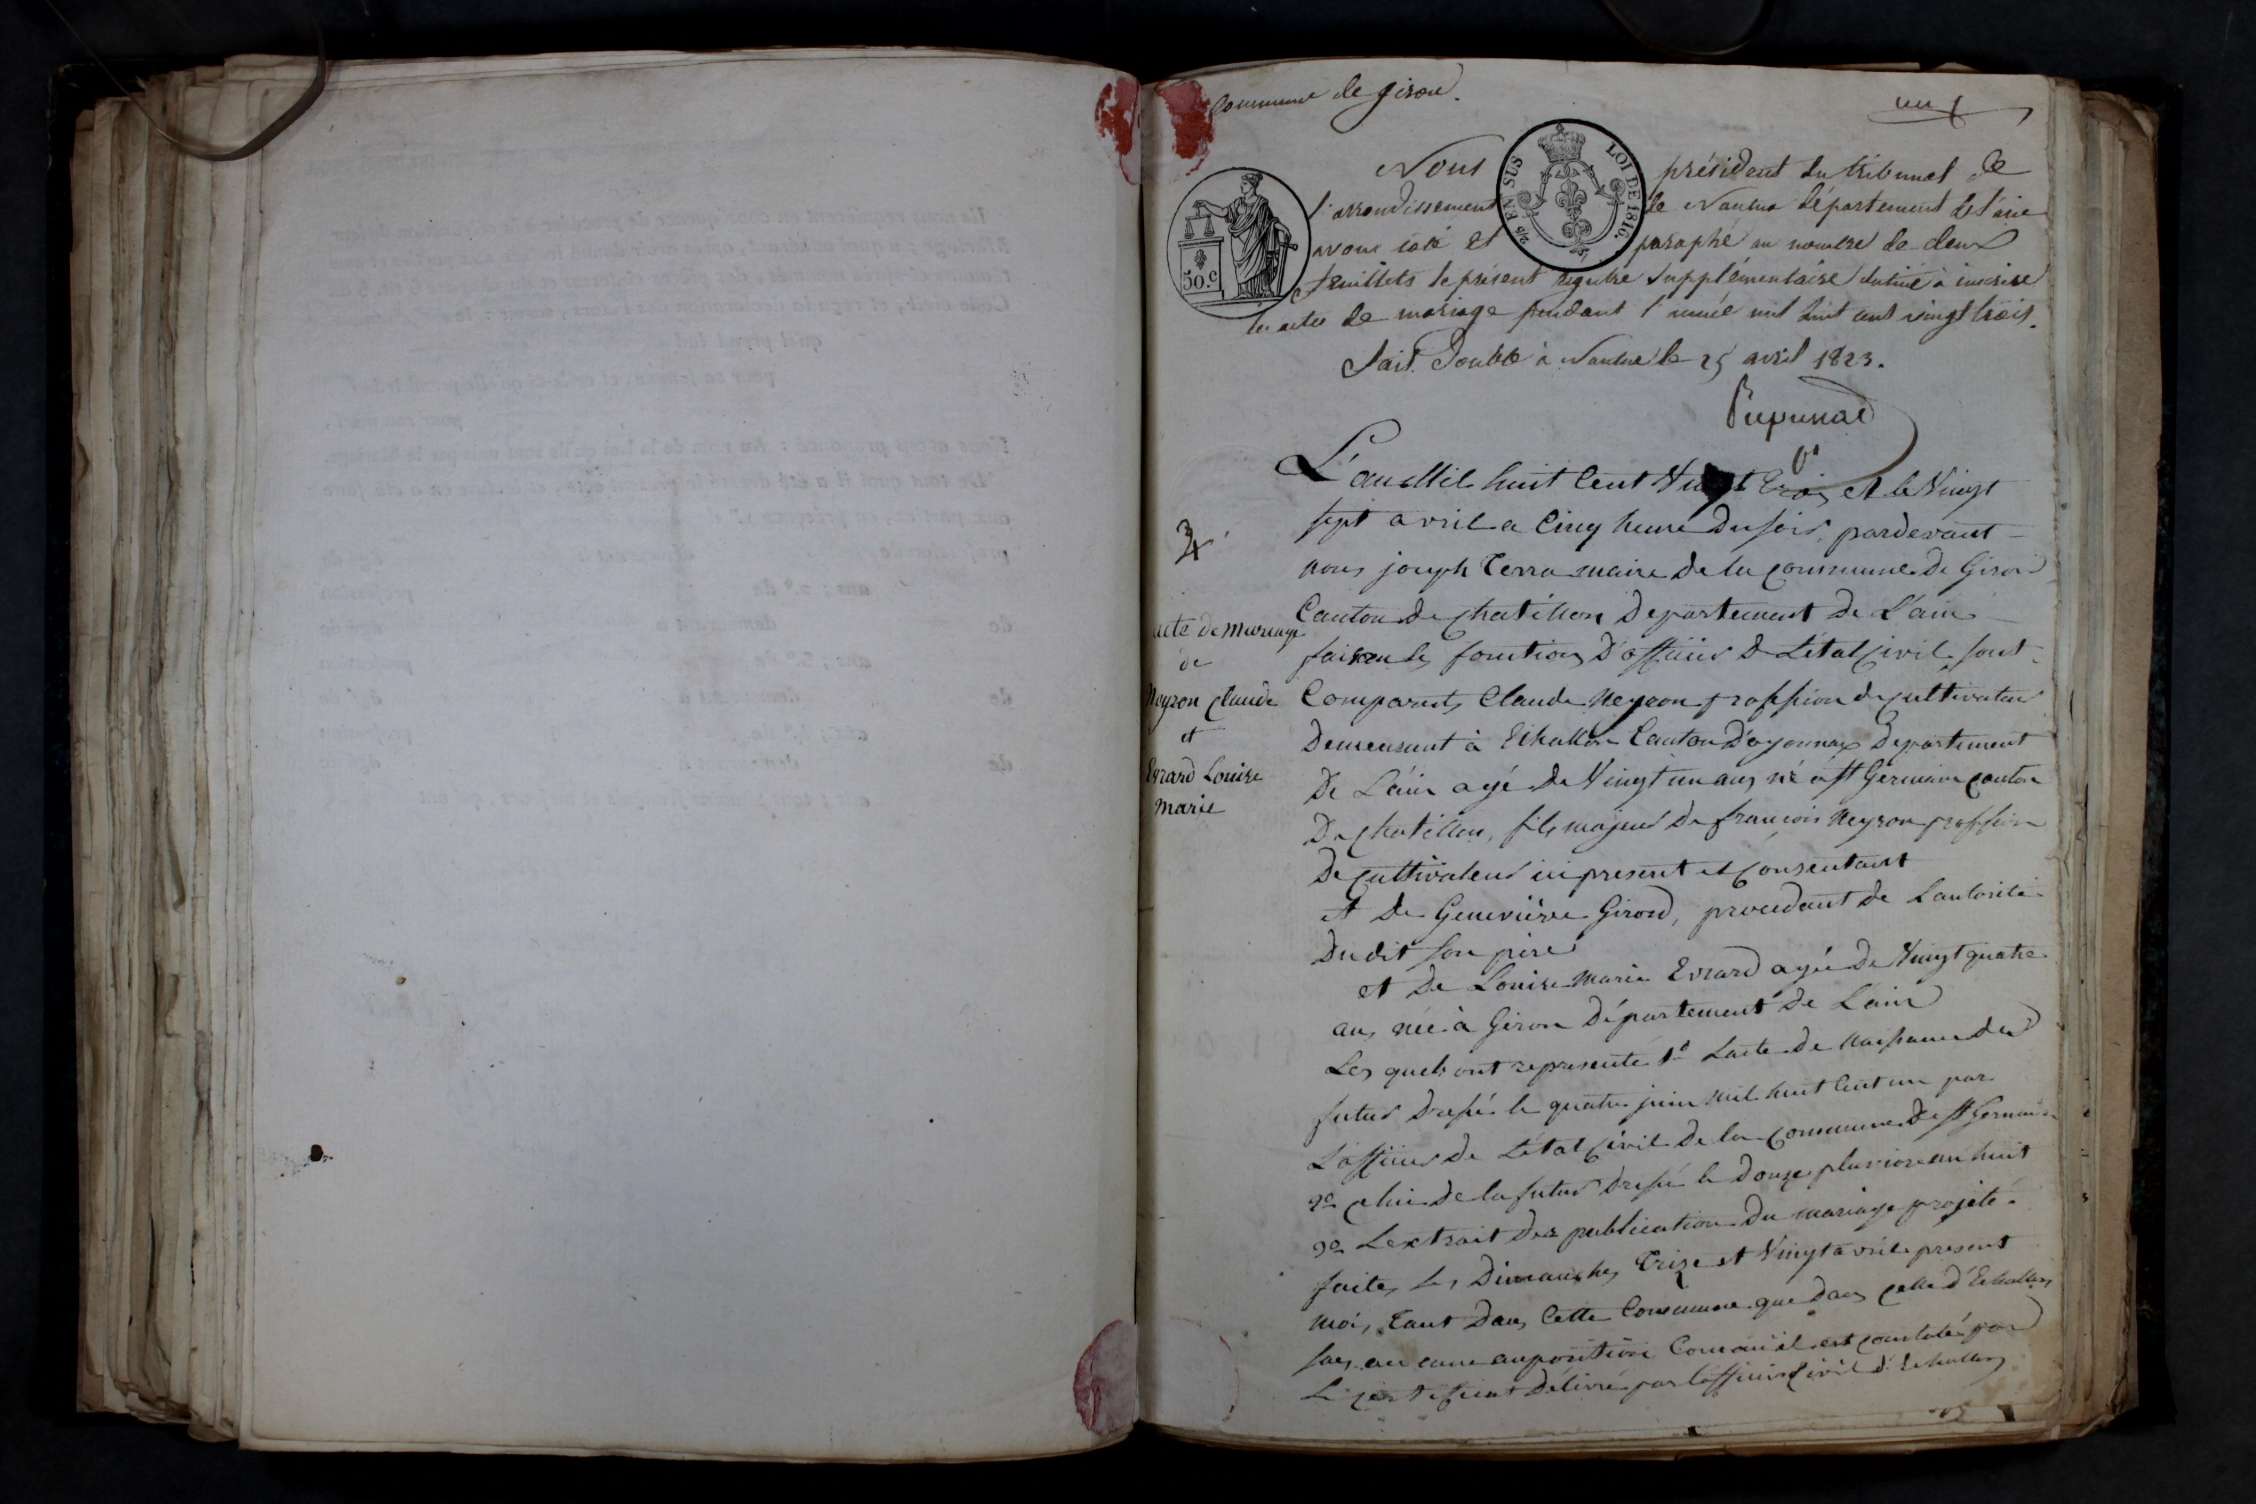 Commune de Giron.
un
Nous président du tribunal de
l'arrondissement de Nantua département de l'ain
avons coté et paraphé au nombre de deux
feuillets le présent registre supplémentaire destiné à inscrire
les actes de mariage pendant l'année mil huit cent vingt trois.
fait Double à Nantua le 25 avril 1823.
2/5 EN SUS LOI DE 1816.
50.c
L'an Mil huit Cent Vingt Trois et le Vingt
sept avril a Cinq heure Du soir, pardevant
nous joseph Terra maire de la Commune De Giron
Canton de Chatillon Departement De L'ain
faisan les fonctions D'officier De L'état Civil sont
Comparents Claude Neyron proffesion de Cultivateur
Demeurant à Echallon Canton D'oyonnax Departement
De L'ain agé De Vingt un ans, né à St Germain Canton
De Chatillon, fils majeur De françois Neyron proffesion
De Cultivateur ici present et Consentant
et De Geneviève Girod, procedant De L'autorité
Du dit son père
et De Louise Marie Evrard agée De Vingt quatre
ans, née à Giron Département De L'ain
Les quels ont representé 1o L'acte De Naissance du
futur Dressé le quatre juin Mil huit Cent un par
L'officier De L'état Civil De la Commune De St Germain
2o Celui De la futur Dressé le Douze pluviose an huit
3o L'extrait Des publication Du mariage projeté
faites les Dimanches Treize et Vingt avril present
mois, Tant Dans Cette Commune que Dans Celle d'Echallon
sans aucune auposition Comme il est Constaté par
Le Certificat Délivré par L'officier Civil d'Echallon
acte De Mariage
de
Neyron Claude
et
Evrard Louise
Marie